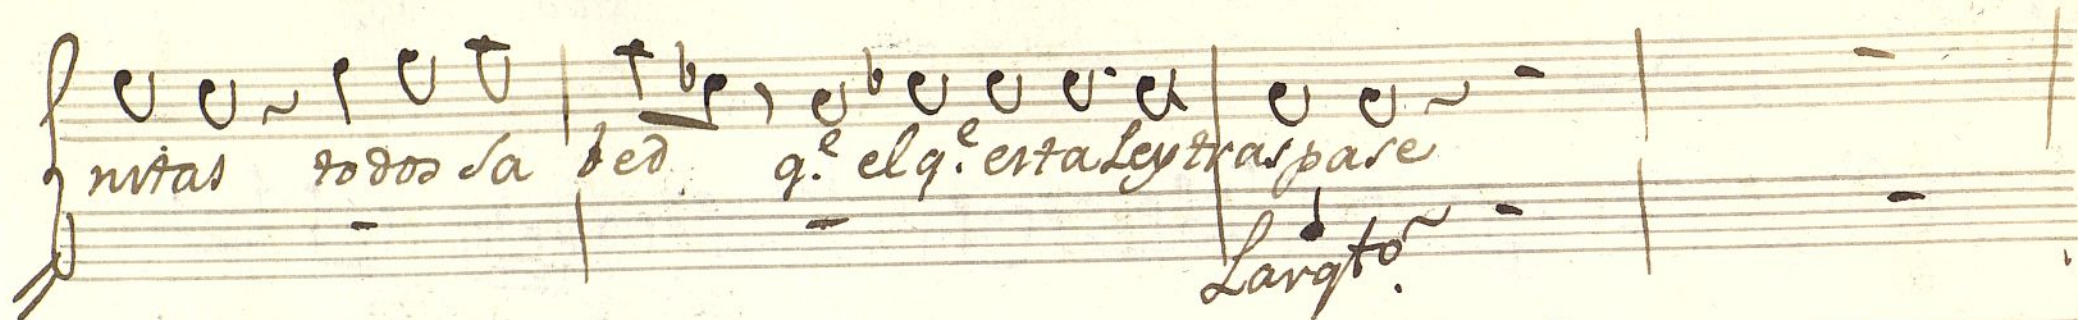 nitas todos sa bed q.e el q.e esta Ley traspase
Largto.